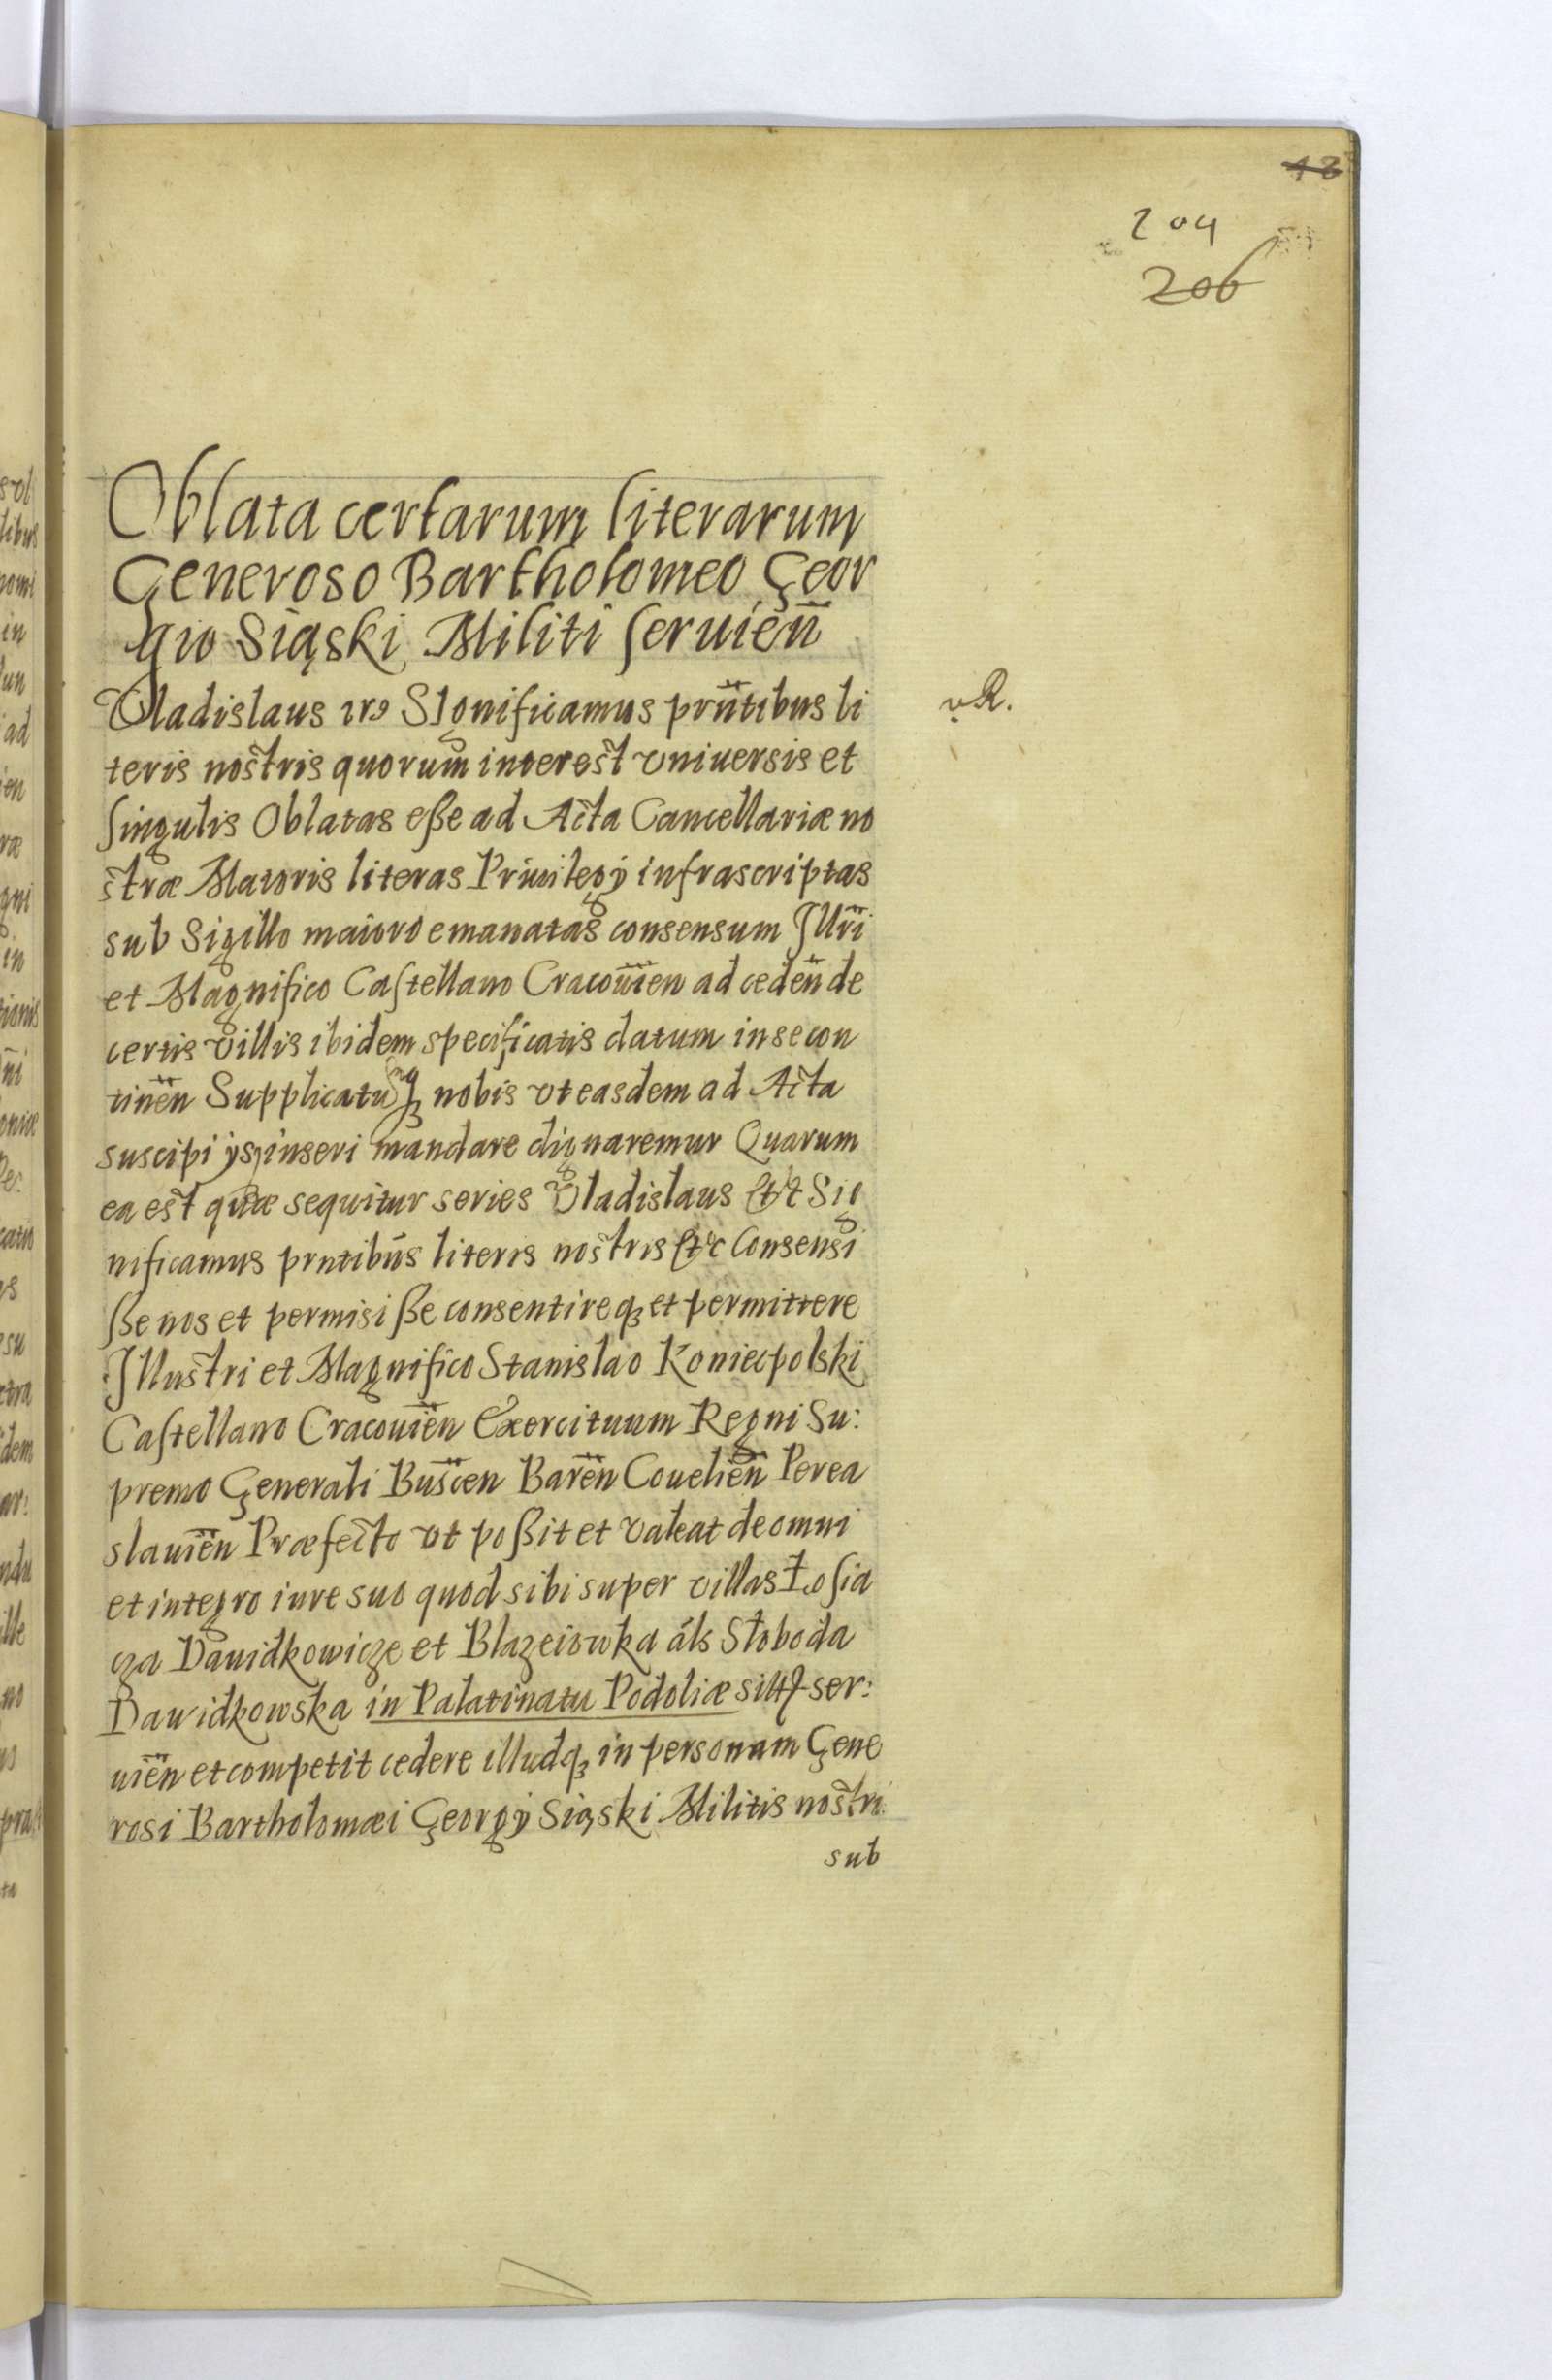 18
204
206
Oblata certarum literarum
Generoso Bartholomeo Geor
gio Siąski Militi seruien̄
Vladislaus IVs Significamus prn̄tibus li
v. R.
teris nostris quorum interest vniuersis et
singulis Oblatas esse ad Acta Cancellariæ no
stræ Maioris literas Priuilegÿ infrascriptas
sub Sigillo maiore emanatas consensum Illr̄i
et Magnifico Castellano Cracouīen ad ceden̄ de
certis villis ibidem specificatis datum in se con
tinēn Supplicatūq3 nobis vt easdem ad Acta
suscipi ÿsq3 inseri mandare dignaremur Quarum
ea est quæ sequitur series Vladislaus etc Sig
nificamus prntibūs literis nostris etc Consensi
sse nos et permisisse consentireq3 et permittere
Illustri et Magnifico Stanislao Koniecpolski
Castellano Cracouiēn Exercituum Regni Su:
premo Generali Buscēn Barēn Coueliēn Perea
slauiēn Præfecto vt possit et valeat de omni
et integro iure suo quod sibi super villas Łosia
cza Dauidkowicze et Blazeiowka āls Słoboda
Dawidkowska in Palatinatu Podoliæ sitas ser:
uiēn et competit cedere illudq3 in personam Gene
rosi Bartholomæi Georgÿ Siąski Militis nostri
sub